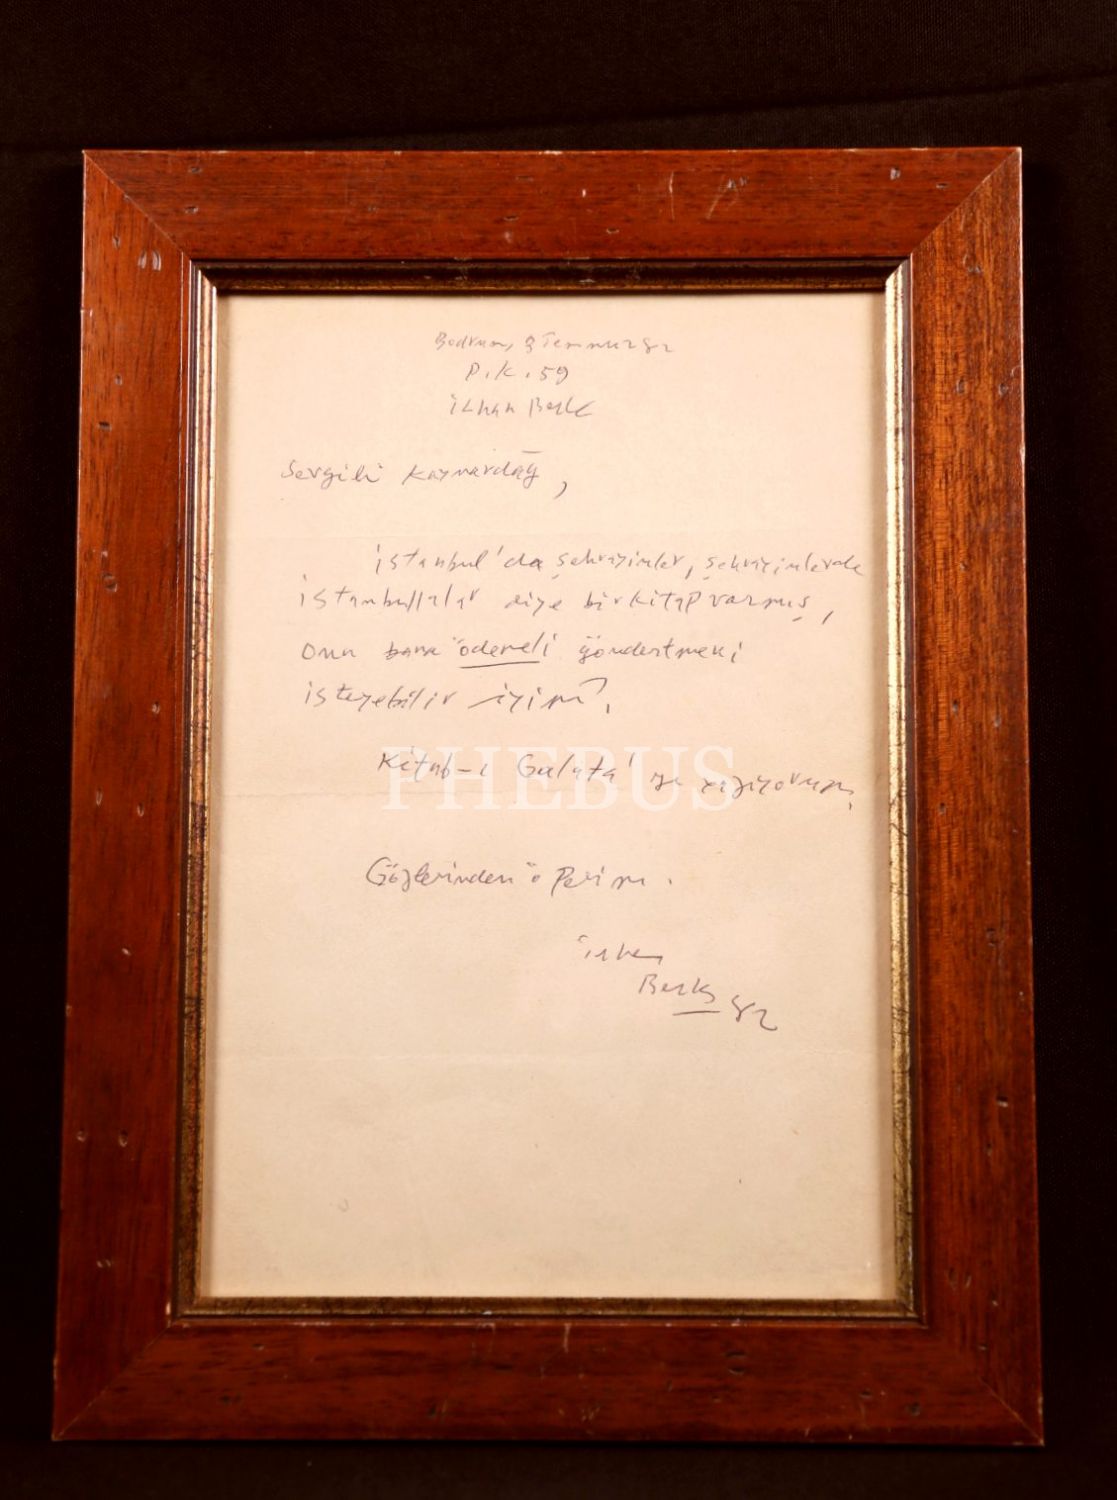 Bodrum, 3 Temmuz 82
P.K. 59
İlhan Berk
Sevgili Kaynardağ,
İstanbul'da şehrayinler, şehrayinlerde
istanbullular diye bir kitap varmış,
Onu bana ödemeli göndertmeni
isteyebilir miyim?
Kitab-ı Galata'yı yazıyorum.
Gözlerinden öperim.
İlhan
Berk
82
PHEBUS